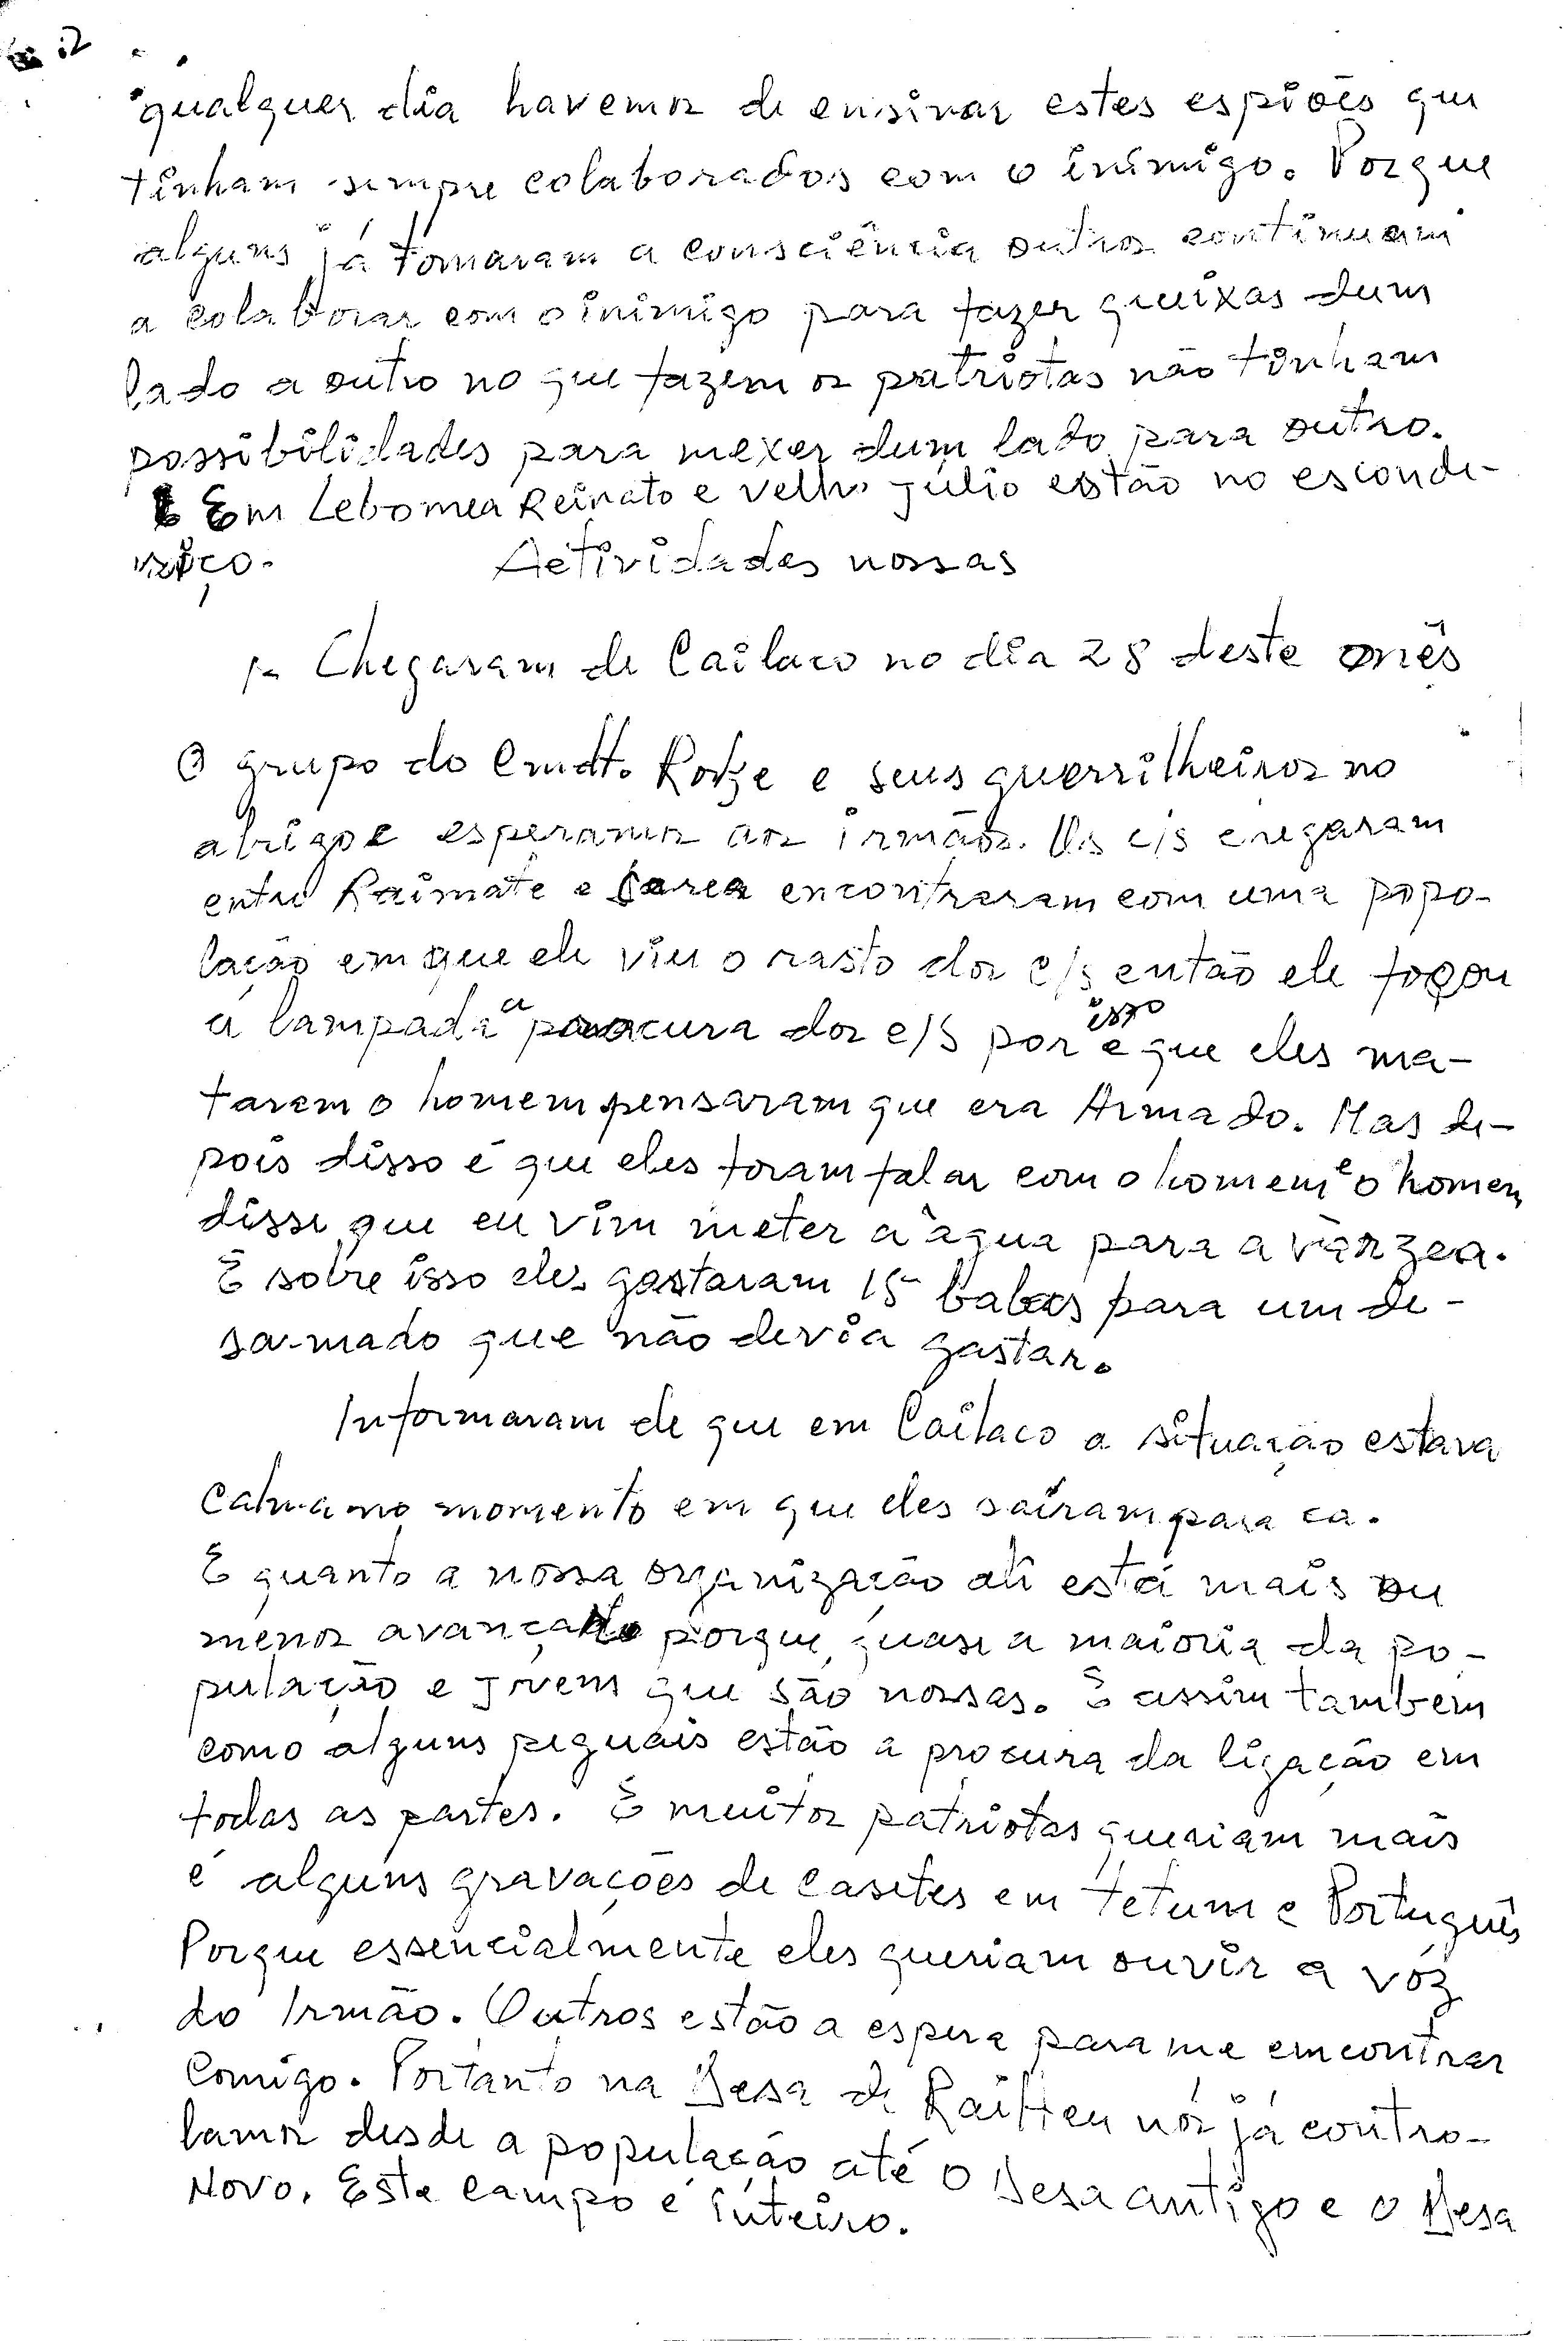 qualquer dia havemos de ensinar estes espiões que
tinham sempre colaborados com o inimigo. Porque
alguns já tomaram a consciência outros continuam
a colaborar com o inimigo para fazer queixas dum
lado a outro no que fazem os patriotas não tinham
possibilidades para mexer dum lado para outro.
Em Lebomea Reinato e velho Júlio estão no escondi-
riço.
Actividades nossas
1- Chegaram de Cailaco no dia 28 deste mês
O grupo do Cmdt. Rodze e seus guerrilheiros no
abrigo e esperamos aos irmãos. Os c/s chegaram
entre Raimate e encontraram com uma popo-
lação em que ele viu o rasto dos c/s então ele focou
a lampada a procura dos c/s por isso é que eles ma-
taram o homem pensaram que era Armado. Mas de-
pois disso é que eles foram falar com o homem e o homem
disse que eu vim meter a água para a várzea.
E sobre isso eles gastaram 15 balas para um de-
sarmado que não devia gastar.
Informaram de que em Cailaco a situação estava
calma no momento em que eles saíram para ca.
E quanto a nossa organização ali está mais ou
menos avançado porque quase a maioria da po-
pulação e jovens que são nossas. E assim também
como alguns peguais estão a procura da ligação em
todas as partes. E muitos patriotas queriam mais
é alguns gravações de casetes em tetum e Português
Porque essencialmente eles queriam ouvir a vóz
do Irmão. Outros estão a espera para me emcontrar
comigo. Portanto na Desa de RaiHeu nós já contro-
lamos desde a população até o Desa antigo e o Desa
Novo. Este campo é inteiro.